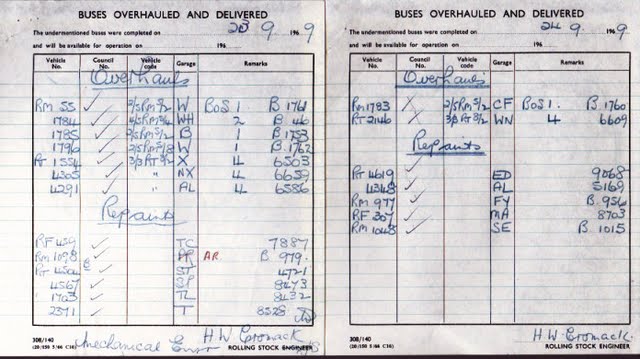 BUSES OVERHAULED AND DELIVERED
The undermentioned buses were completed on 23 9 1969
and will be available for operation on 196
Vehicle No. Council No. Vehicle code Garage Remarks
Overhauls
RM 55 2/5RM5/2 W BoS 1 B 1761
1784 WH 2 B 46
1785 2/5RM5/2 B 1 B 1753
1796 W 1 B 1762
RT 1554 3/3RT8/2 X 4 6503
4305 " NX 4 6659
4291 " AL 4 6586
Repaints
RF 459 TC 7887
RM 1098 AR B 979
RT 4504 ST 4721
4567 SP 8473
1703 TL 8432
2371 T 8528
308/140
(20/150 5/66 C16)
Mechanical Engr
H W Cromack
ROLLING STOCK ENGINEER
BUSES OVERHAULED AND DELIVERED
The undermentioned buses were completed on 24 9 1969
and will be available for operation on 196
Vehicle No. Council No. Vehicle code Garage Remarks
Overhauls
RM 1783 X 2/5RM5/2 CF BoS 1. B 1760
RT 2146 X 3/3RT8/2 WN 4 6609
Repaints
RT 4619 ED 9068
4348 AL 5169
RM 977 FY B. 956
RF 307 MA 8703
RM 1048 SE B 1015
308/140
(20/100 5/66 C16)
H W Cromack
ROLLING STOCK ENGINEER